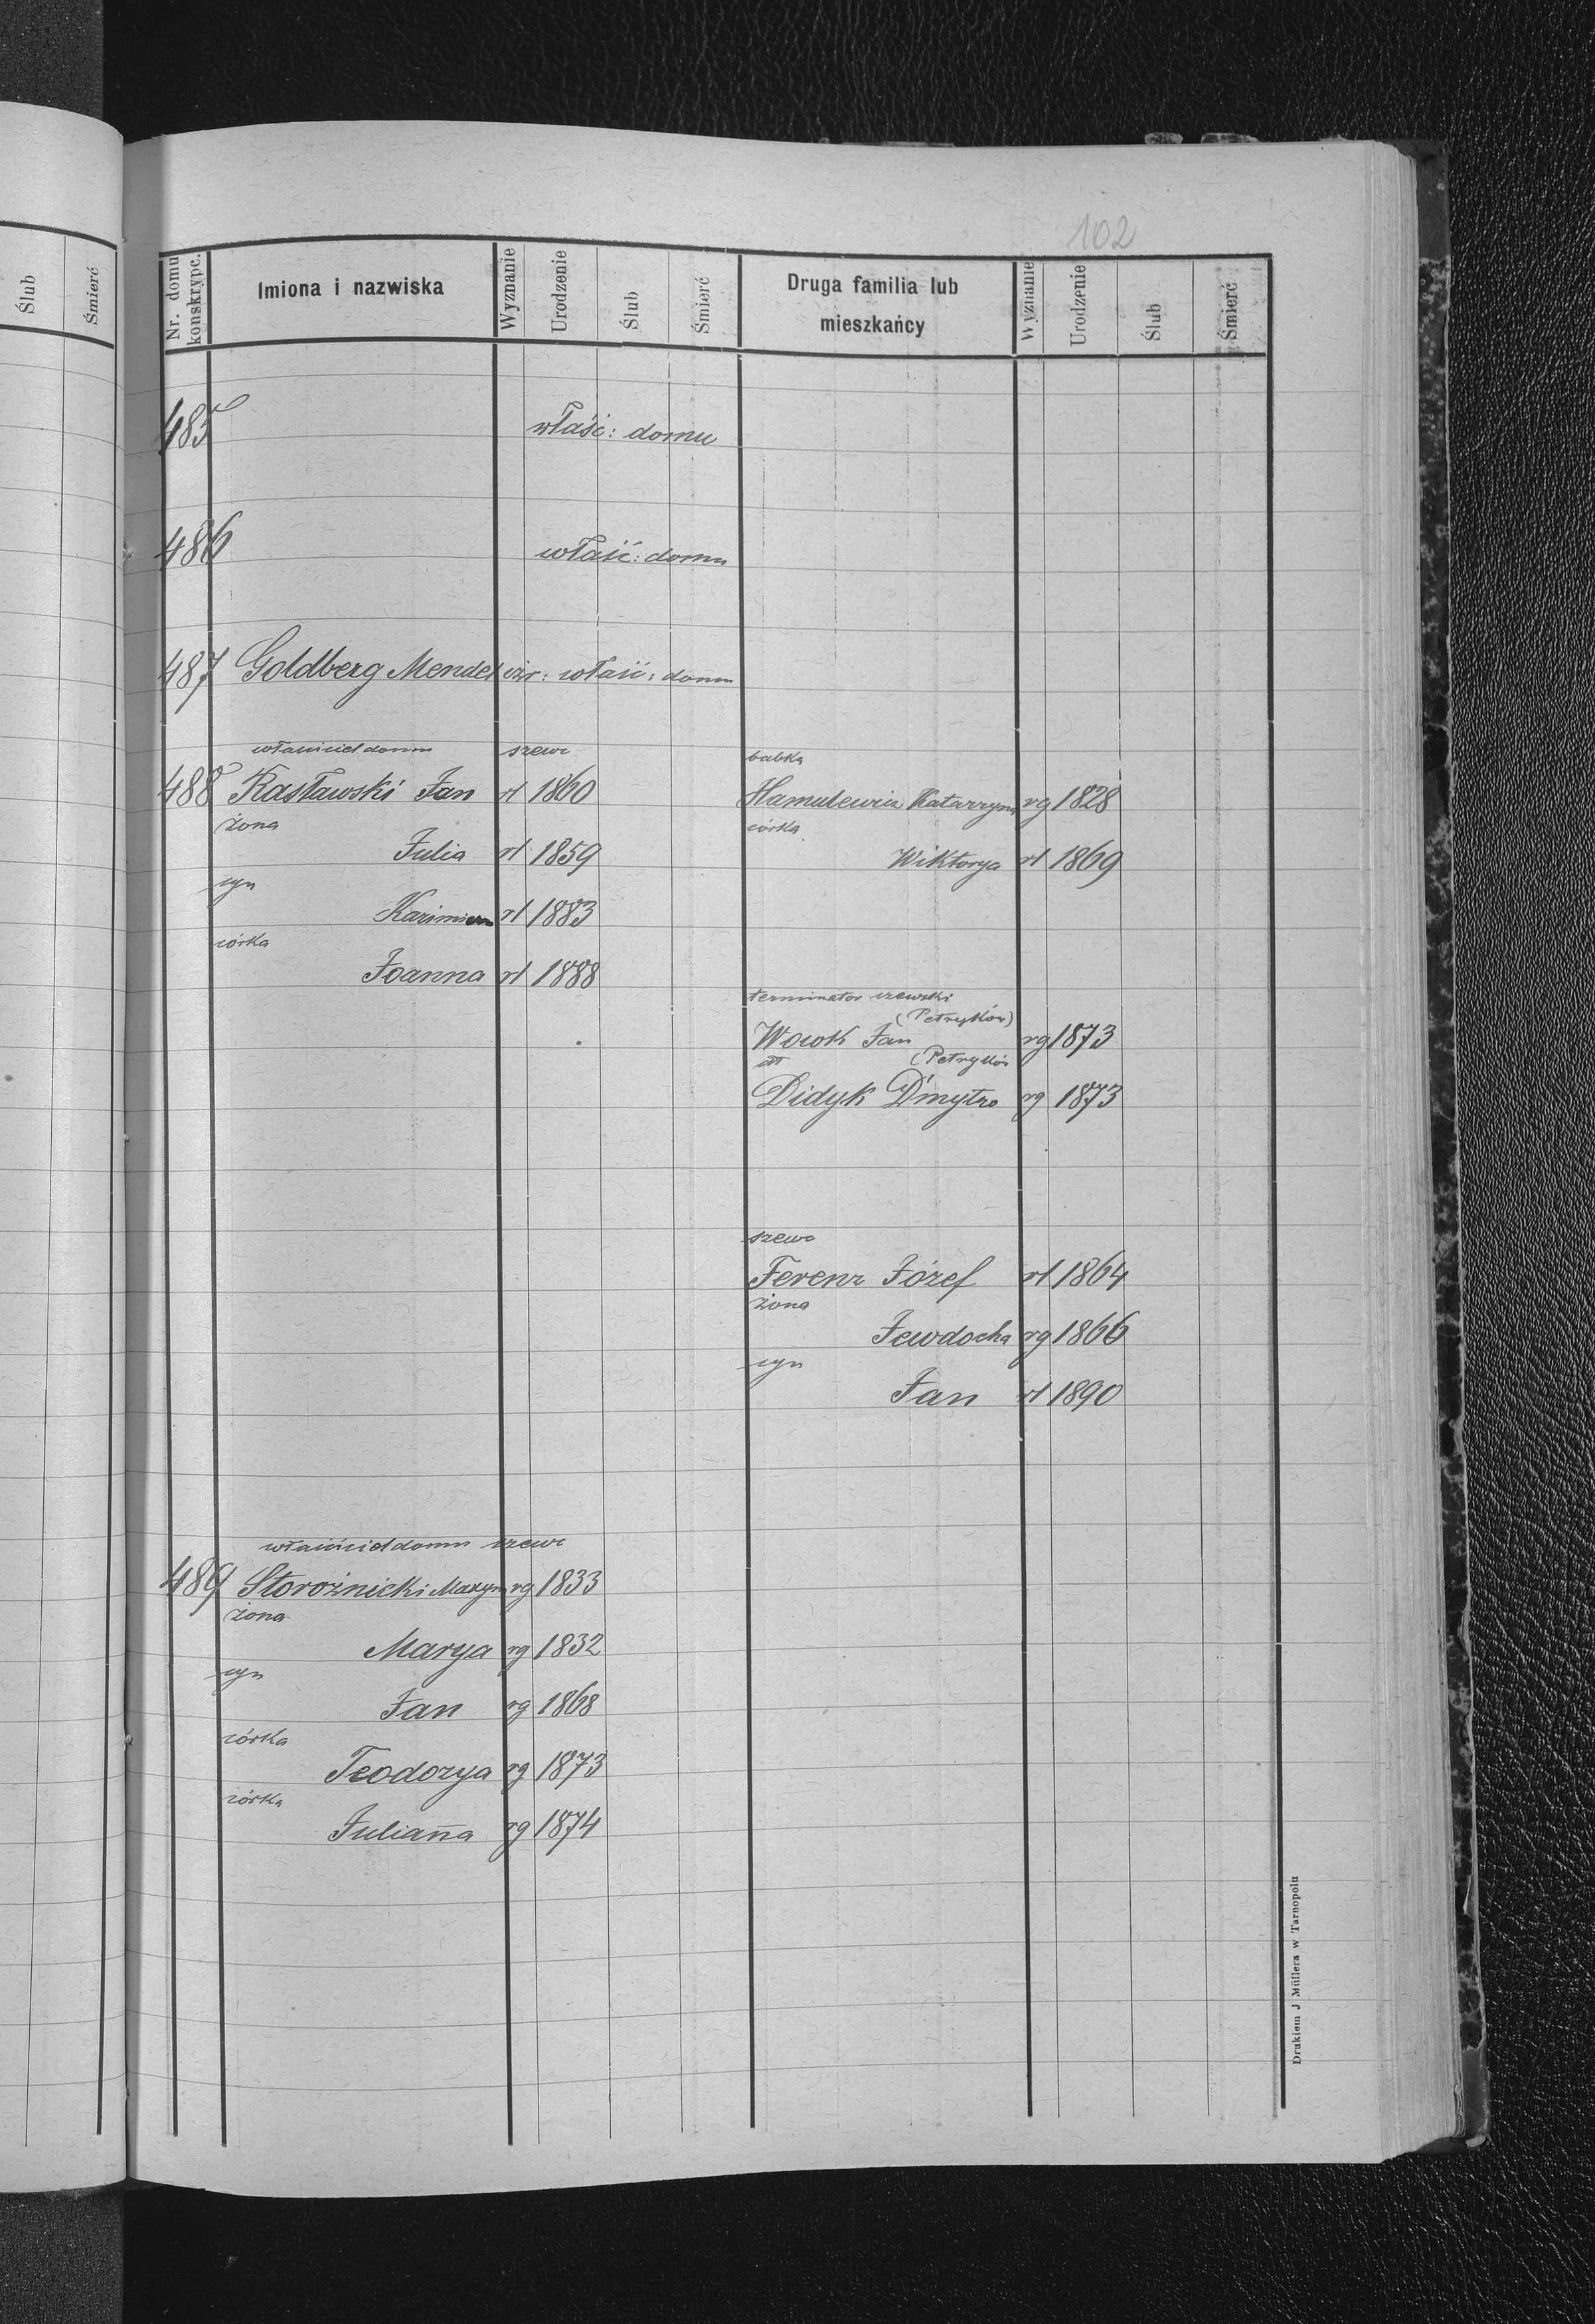 Ślub
Śmierć
102
Nr. domu konskrypc.
Imiona i nazwiska
Wyznanie
Urodzenie
Ślub
Śmierć
Druga familia lub
mieszkańcy
Wyznanie
Urodzenie
Ślub
Śmierć
485 właść: domu
486 właść: domu
487 Goldberg Mendel izr: właść: domu
właściciel domu szewc
488 Kasławski Jan rł 1860
żona
Julia rł 1859
syn
Kazimierz rł 1883
córka
Joanna rł 1888
babka
Hamulewicz Katarzyna rg 1828
córka
Wiktorya rł 1869
terminator szewski
(Petryków)
Wowk Jan rg 1873
(Petryków
Didyk Dmytro rg 1873
szewc
Ferenz Józef rł 1864
żona
Jewdocha rg 1866
syn
Jan rł 1890
właściciel domu szewc
489 Storożnicki Maxym rg 1833
żona
Marya rg 1832
syn
Jan rg 1868
córka
Teodozya rg 1873
córka
Julianna rg 1874
Drukiem J Müllera w Tarnopolu